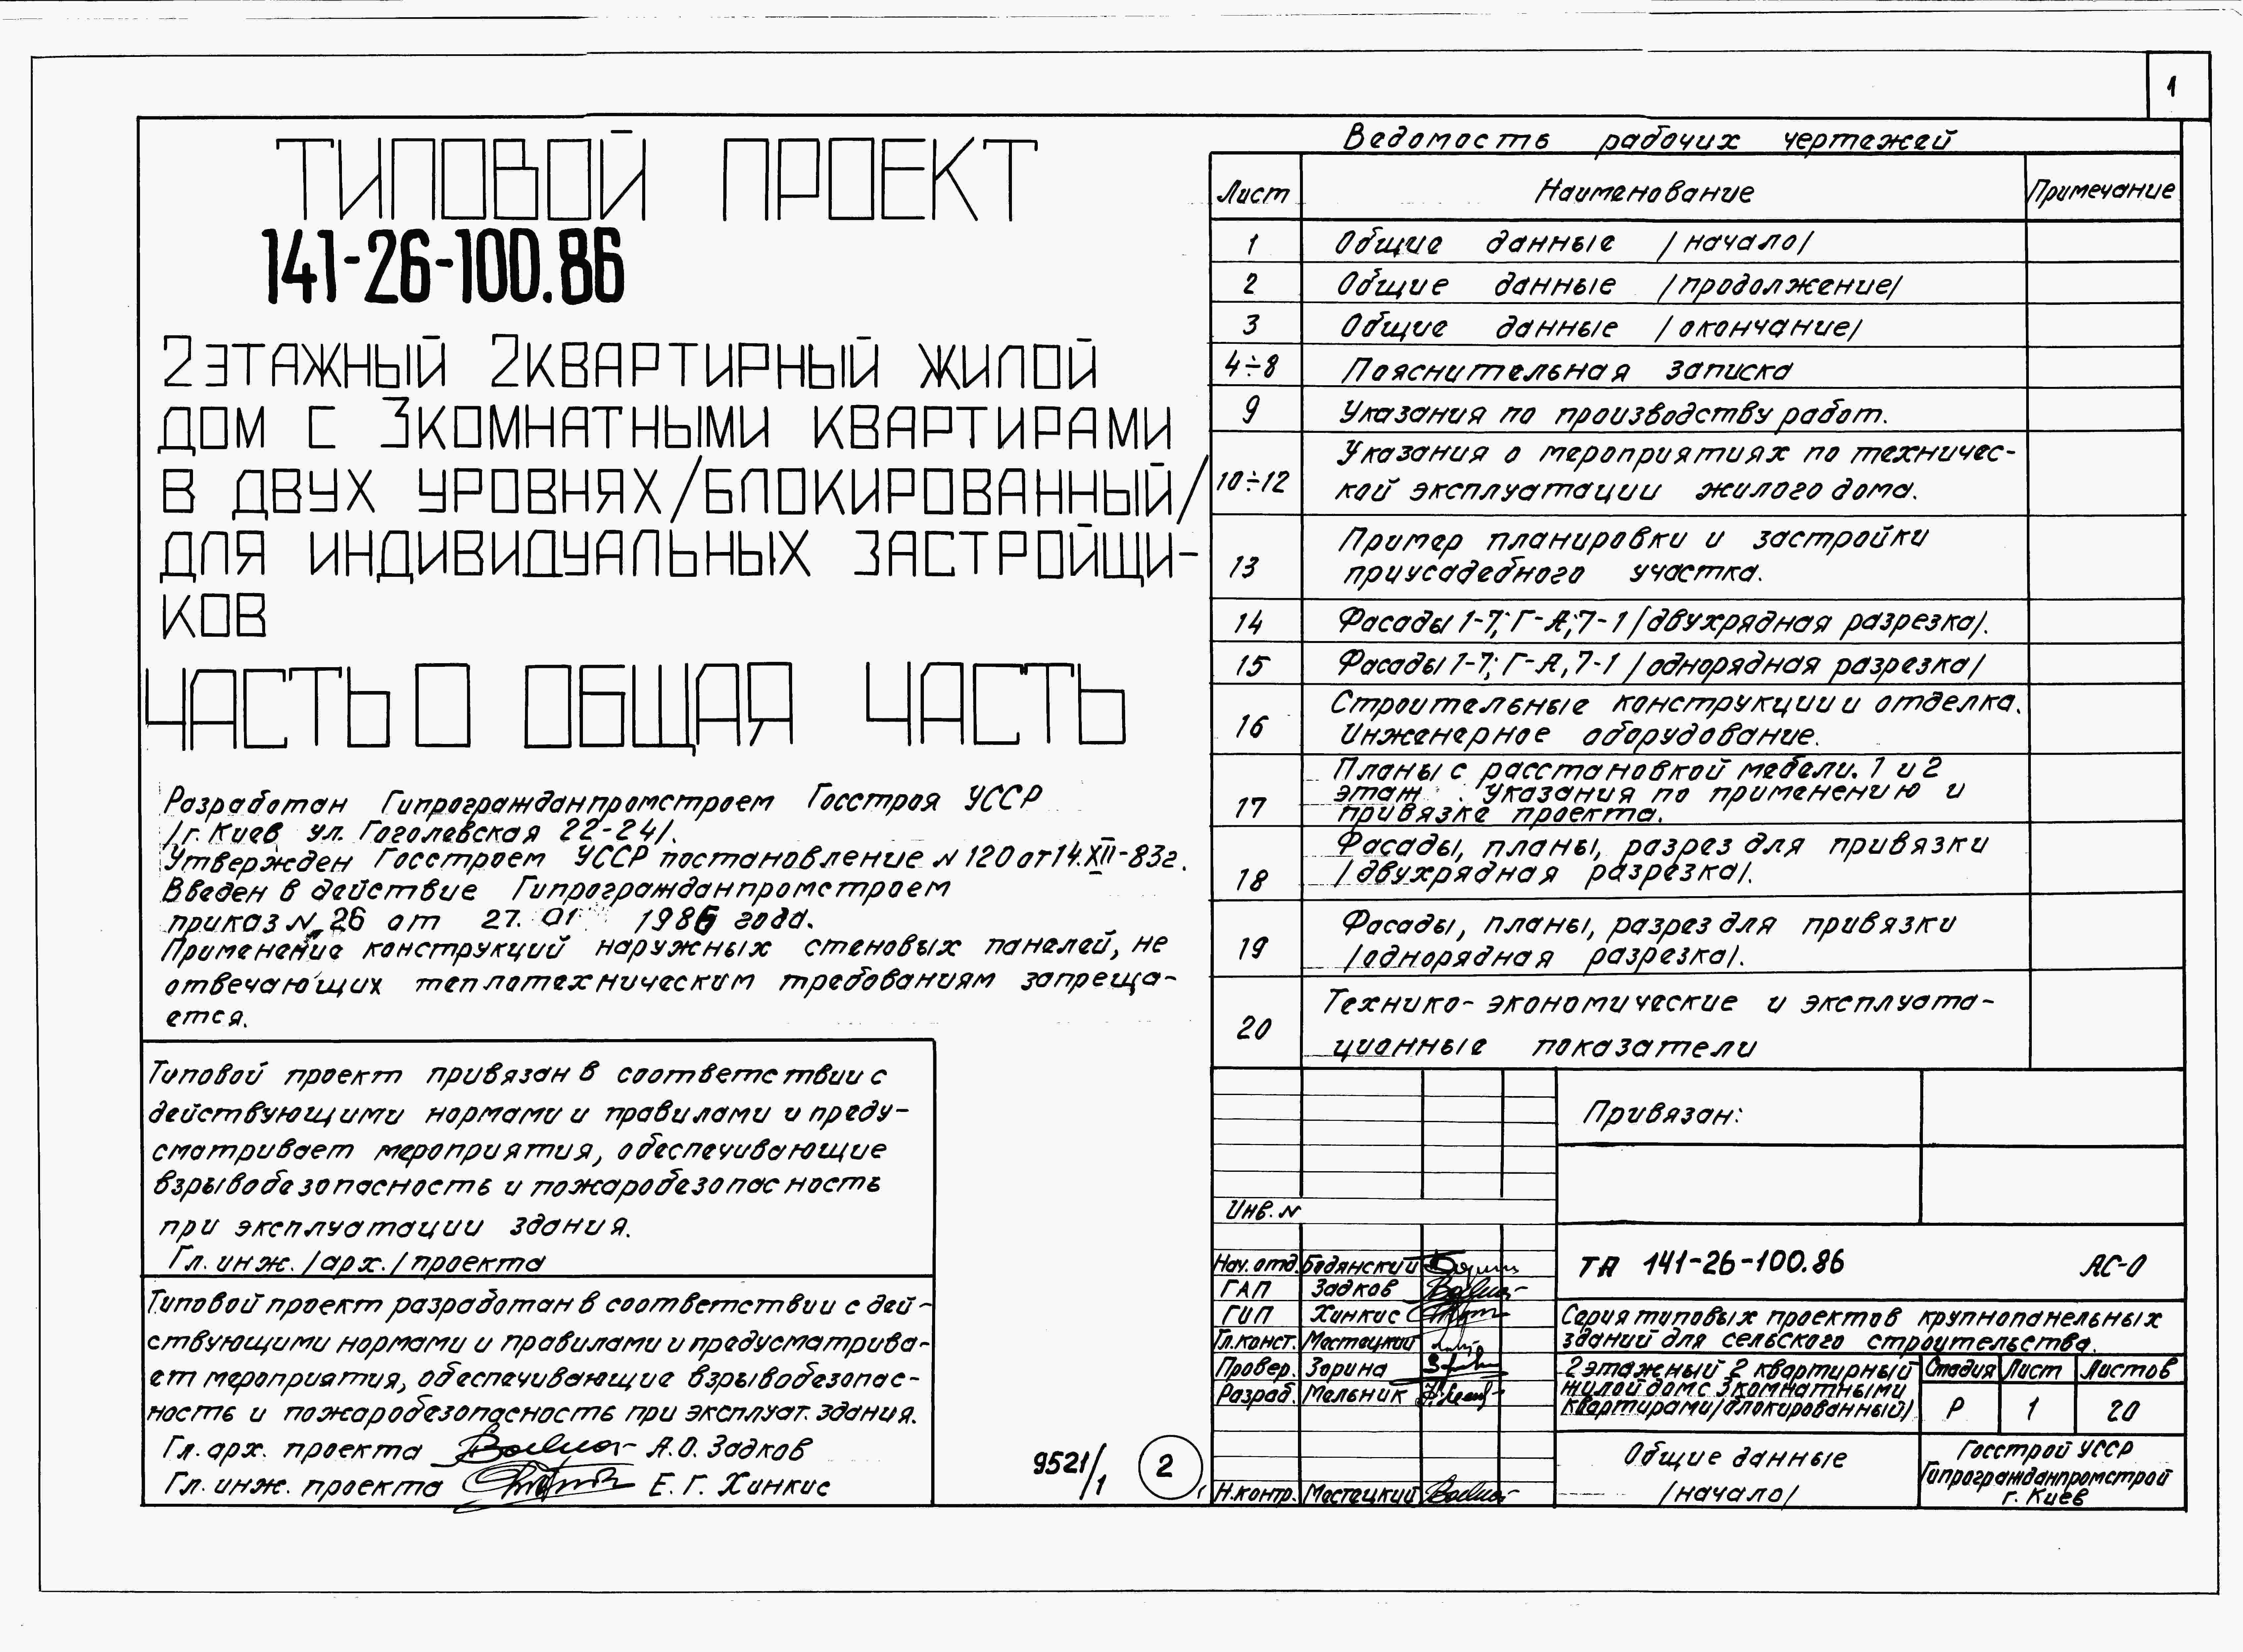 1
ТИПОВОЙ ПРОЕКТ
141-26-100.86
2ЭТАЖНЫЙ 2КВАРТИРНЫЙ ЖИЛОЙ
ДОМ С 3КОМНАТНЫМИ КВАРТИРАМИ
В ДВУХ УРОВНЯХ/БЛОКИРОВАННЫЙ/
ДЛЯ ИНДИВИДУАЛЬНЫХ ЗАСТРОЙЩИ-
КОВ
ЧАСТЬ 0 ОБЩАЯ ЧАСТЬ
Разработан Гипрогражданпромстроем Госстроя УССР
/г. Киев ул. Гоголевская 22-24/.
Утвержден Госстроем УССР постановление N 120 от 14.XII-83г.
Введен в действие Гипрогражданпромстроем
приказ N 26 от 27.01 1986 года.
Применение конструкций наружных стеновых панелей, не
отвечающих теплотехническим требованиям запреща-
ется.
Типовой проект привязан в соответствии с
действующими нормами и правилами и преду-
сматривает мероприятия, обеспечивающие
взрывобезопасность и пожаробезопасность
при эксплуатации здания.
Гл. инж. /арх./ проекта
Типовой проект разработан в соответствии с дей-
ствующими нормами и правилами и предусматрива-
ет мероприятия, обеспечивающие взрывобезопас-
ность и пожаробезопасность при эксплуат. здания.
Гл. арх. проекта А.О. Задков
Гл. инж. проекта Е. Г. Хинкис
9521/1
2
Ведомость рабочих чертежей
Лист Наименование Примечание
1 Общие данные /начало/
2 Общие данные /продолжение/
3 Общие данные /окончание/
4÷8 Пояснительная записка
9 Указания по производству работ.
10÷12 Указания о мероприятиях по техничес-
кой эксплуатации жилого дома.
13 Пример планировки и застройки
приусадебного участка.
14 Фасады 1-7; Г-А; 7-1 /двухрядная разрезка/.
15 Фасады 1-7; Г-А, 7-1 /однорядная разрезка/
16 Строительные конструкции и отделка.
Инженерное оборудование.
17 Планы с расстановкой мебели. 1 и 2
этаж. Указания по применению и
привязке проекта.
18 Фасады, планы, разрез для привязки
/двухрядная разрезка/.
19 Фасады, планы, разрез для привязки
/однорядная разрезка/.
20 Технико-экономические и эксплуата-
ционные показатели
Привязан:
Инв. N
Нач. отд. Бодянский
ГАП Задков
ГИП Хинкис
Гл. конст. Местецкий
Провер. Зорина
Разраб. Мельник
Н. контр. Местецкий
ТП 141-26-100.86 АС-0
Серия типовых проектов крупнопанельных
зданий для сельского строительства.
2 этажный 2 квартирный
жилой дом с 3 комнатными
квартирами /блокированный/
Стадия Лист Листов
Р 1 20
Общие данные
/начало/
Госстрой УССР
Гипрогражданпромстрой
г. Киев